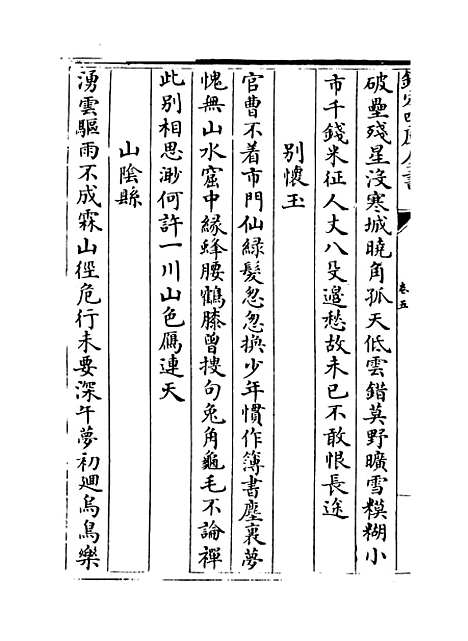 欽定四庫全書
卷五
破壘殘星沒寒城曉角孤天低雲錯莫野曠雪糢糊小
市千錢米征人丈八殳邉愁故未已不敢恨長途
別懷玉
官曹不着市門仙緑髮忽忽换少年慣作簿書塵裏夢
愧無山水窟中緣蜂腰鶴膝曾搜句兎角龜毛不論禪
此别相思渺何許一川山色鴈連天
山隂縣
湧雲驅雨不成霖山徑危行未要深午夢初廻烏鳥樂